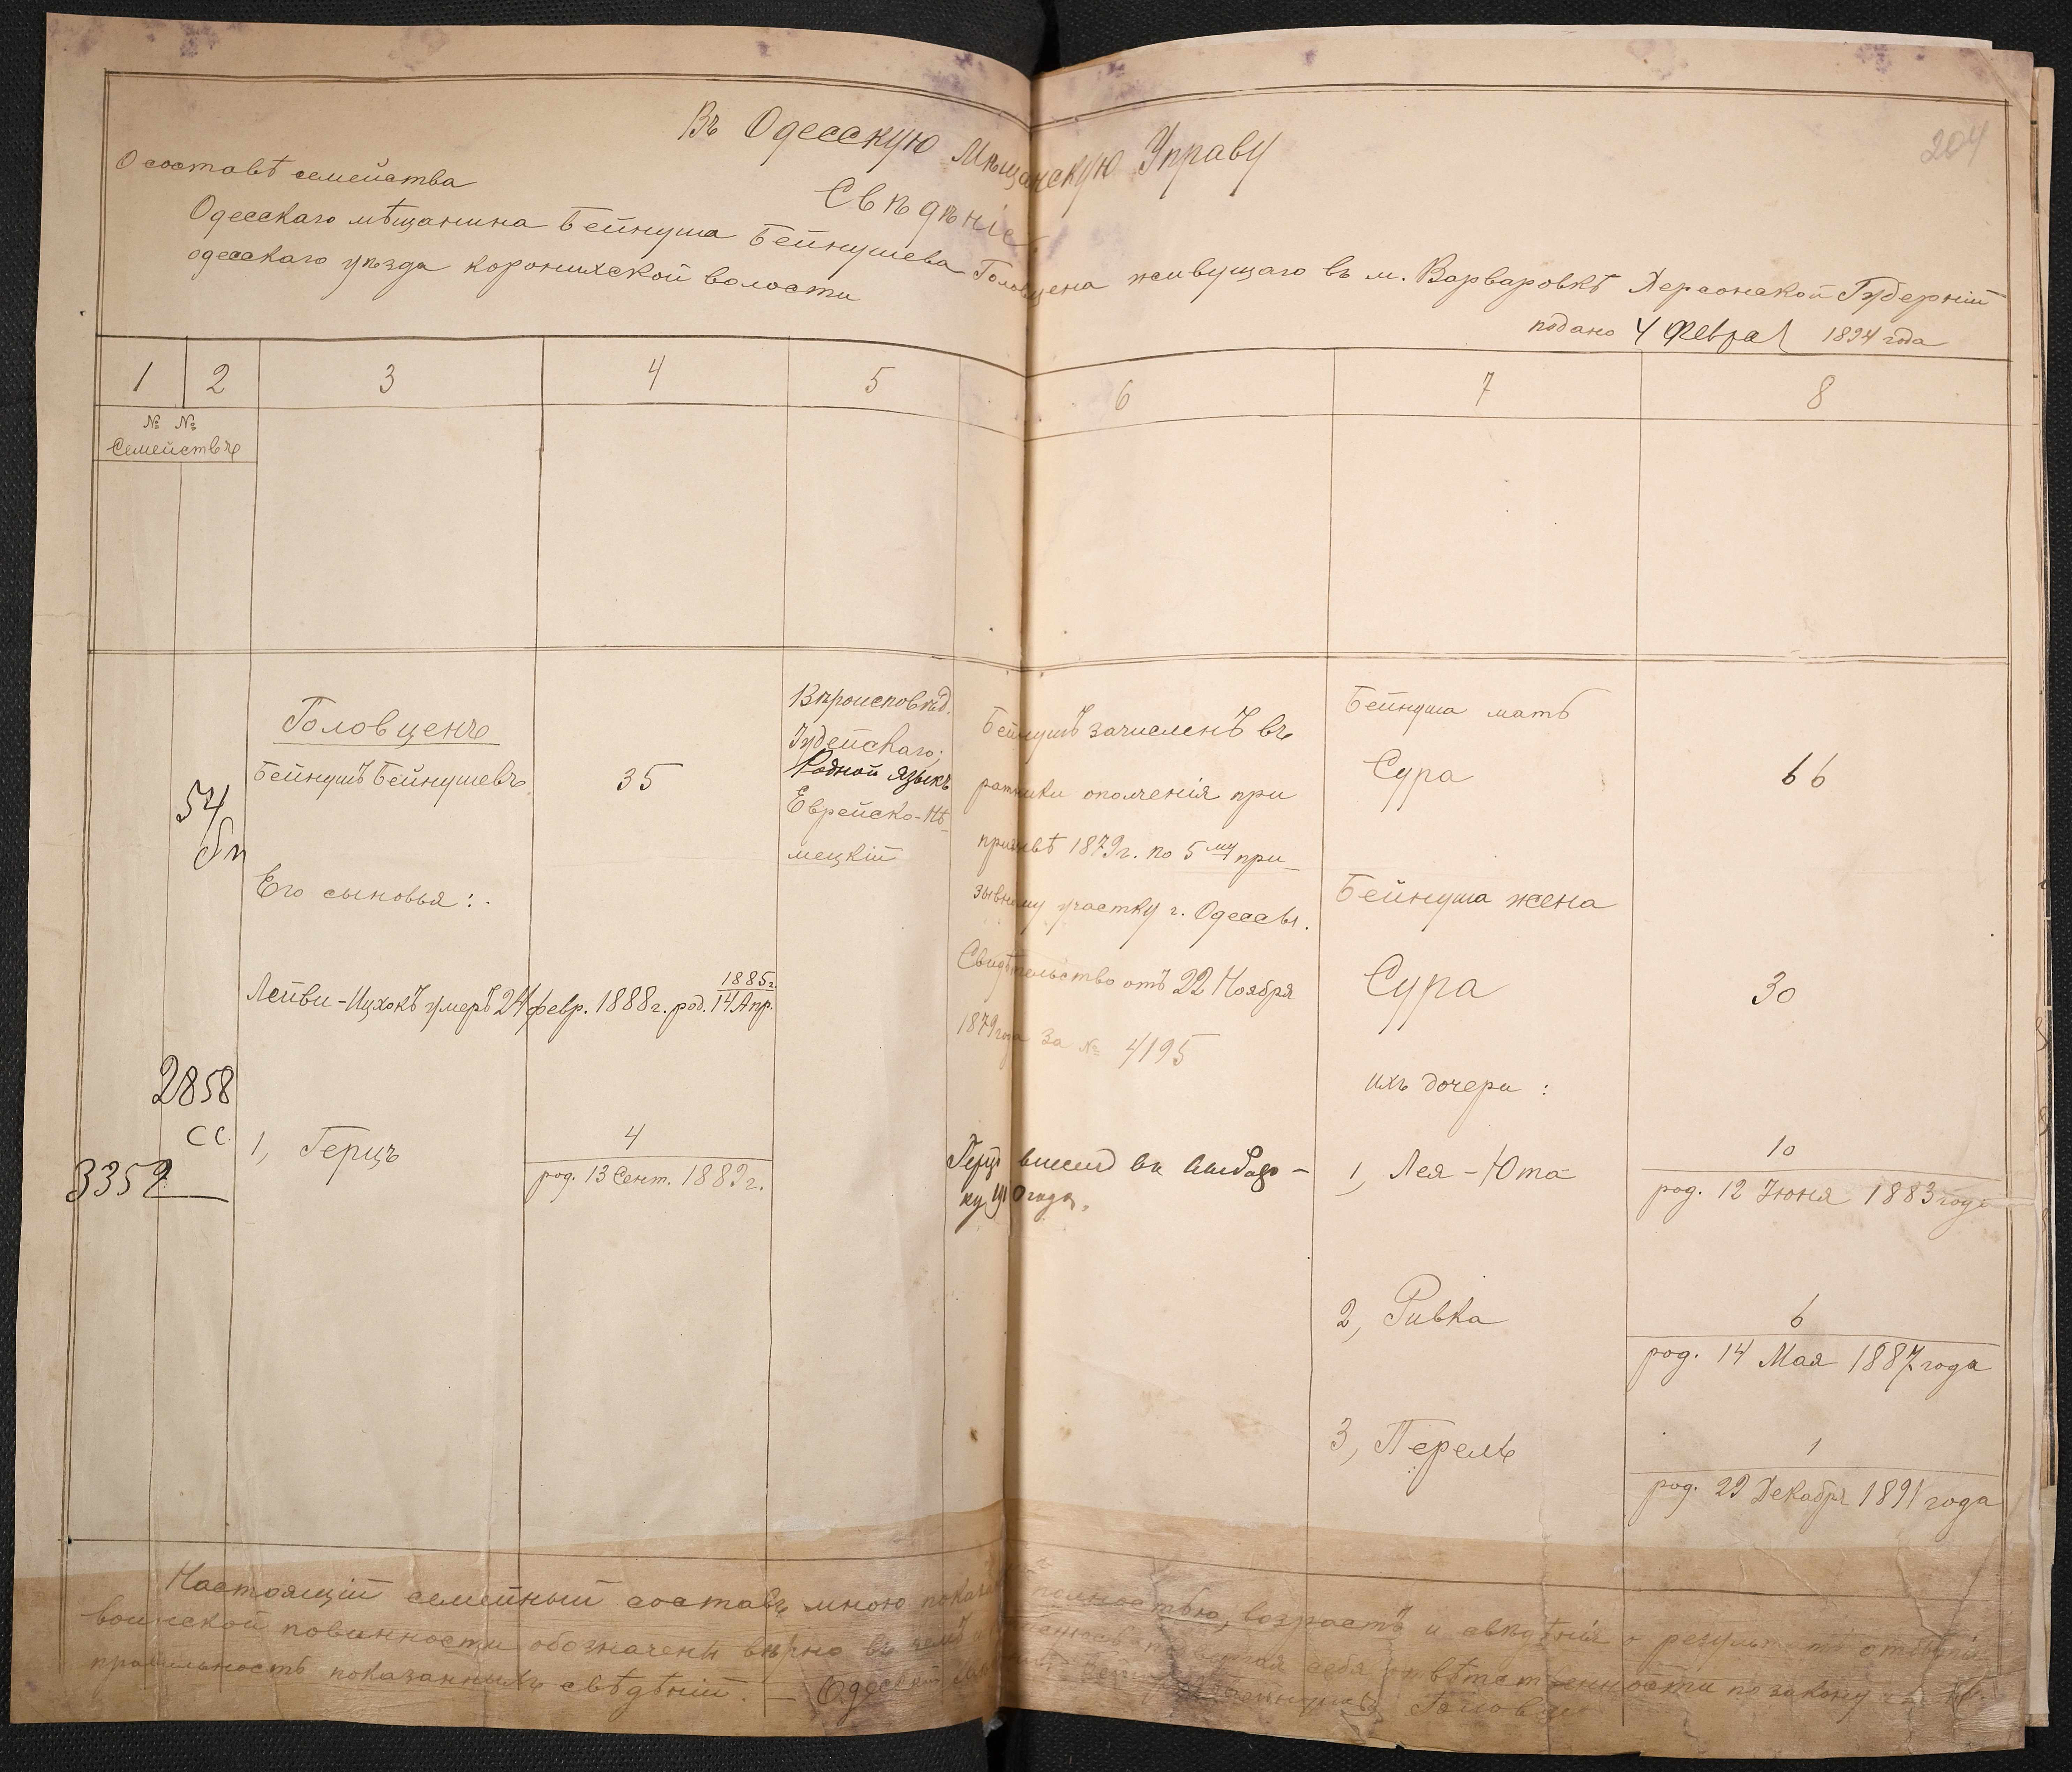 204
Въ Одесскую Мѣщанскую Управу
Свѣдѣніе
О составѣ семейства
Одесскаго мѣщанина Бейнуша Бейнушева Головцена живущаго въ м. Варваровкѣ Херсонской Губерніи
одесскаго уѣзда коронихской волости
подано 4 Феврал 1894 года
1 2 3 4 5 6 7 8
№ №
Семействъ
54
Головценъ
Бейнушъ Бейнушевъ
35
Его сыновья:
Лейви-Ицхокъ умеръ 24 февр. 1888 г. род. 14 Апр.
1885 г.
2858
СС
3352
1, Герцъ
4
род. 13 Сент. 1889 г.
Вѣроисповѣд.
Іудейскаго;
Родной языкъ
Еврейско-Нѣ-
мецкій
Бейнушъ зачисленъ въ
ратники ополченія при
призывѣ 1879 г. по 5му при-
зывному участку г. Одессы.
Свидѣтельство отъ 22 Ноября
1879 года за № 4195
Герцъ внесенъ въ
ку 1910 года.
Бейнуша мать
Сура
66
Бейнуша жена
Сура
30
ихъ дочери:
1, Лея-Юта
10
род. 12 Іюня 1883 года
2, Ривка
6
род. 14 Мая 1887 года
3, Перель
1
род. 29 Декабря 1891 года
Настоящій семейный составъ мною показанъ полностью, возрастъ и свѣдѣнія о результатѣ отбытія
воинской повинности обозначены вѣрно въ чемъ и подвергая себя отвѣтственности по закону
правильность показанныхъ свѣдѣній. — Одесскій Бейнушъ Бейнушевъ